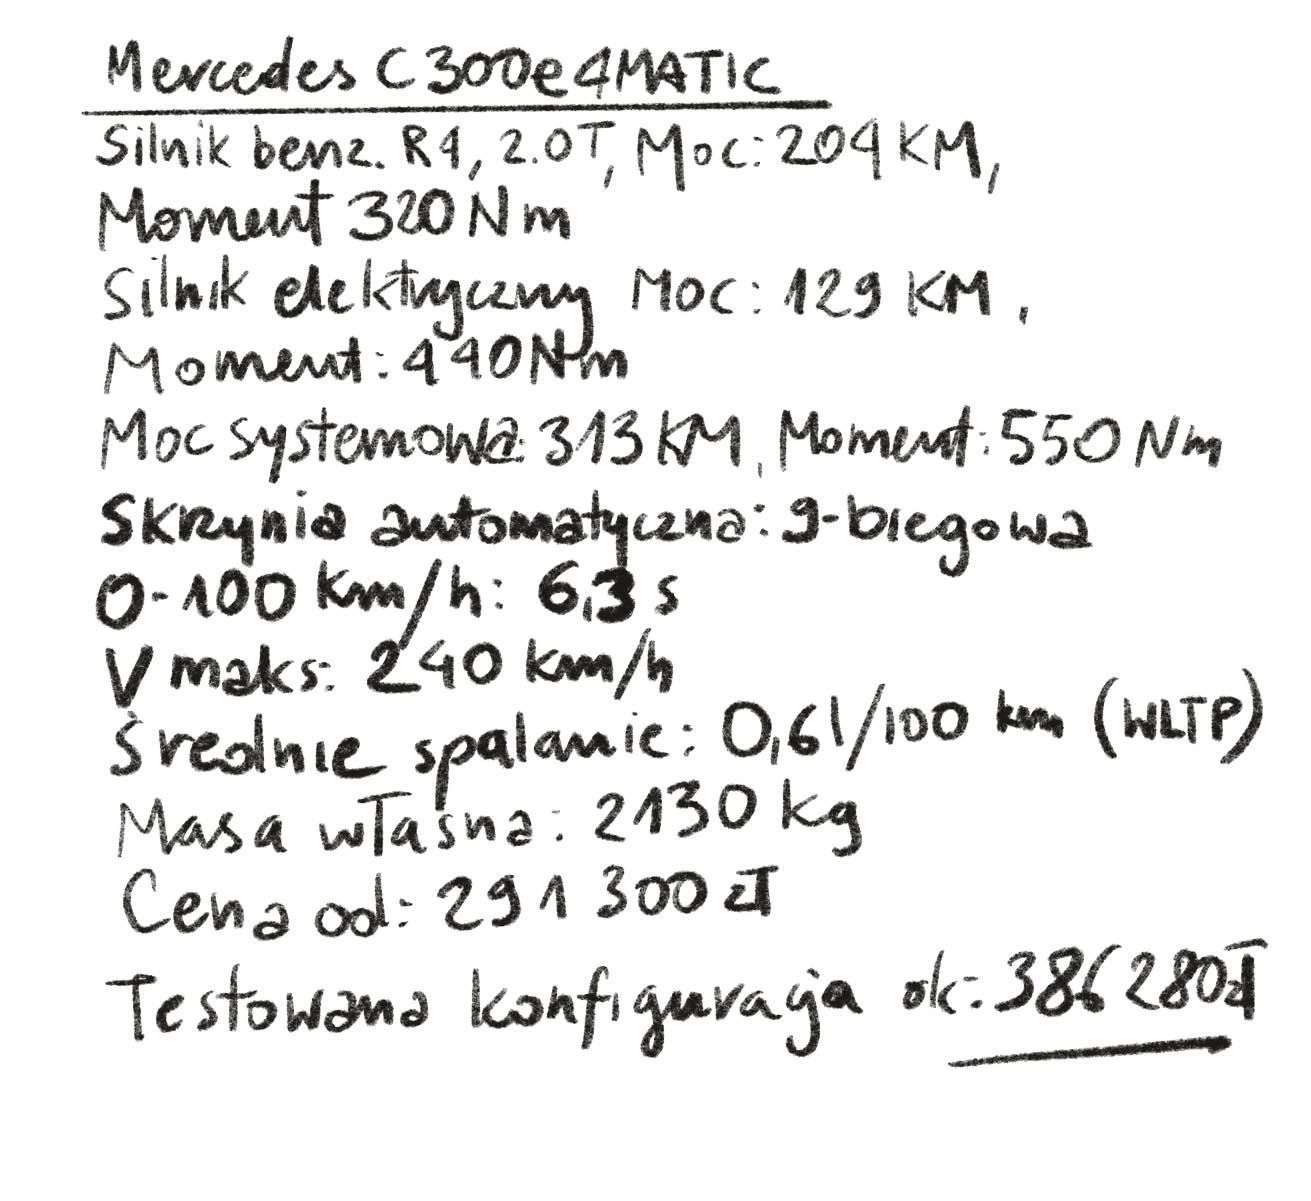 Mercedes C300e4MATIC
Silnik benz. R4, 2.0T, Moc: 204 KM,
Moment 320 Nm
Silnik elektryczny Moc: 129 KM,
Moment: 440Nm
Moc systemowa: 313 KM, Moment: 550 Nm
Skrzynia automatyczna: 9-biegowa
0-100 km/h: 6,3 s
V maks: 240 km/h
Średnie spalanie: 0,6l/100 km (WLTP)
Masa własna: 2130 kg
Cena od: 291 300 zł
Testowana konfiguracja ok: 386 280zł